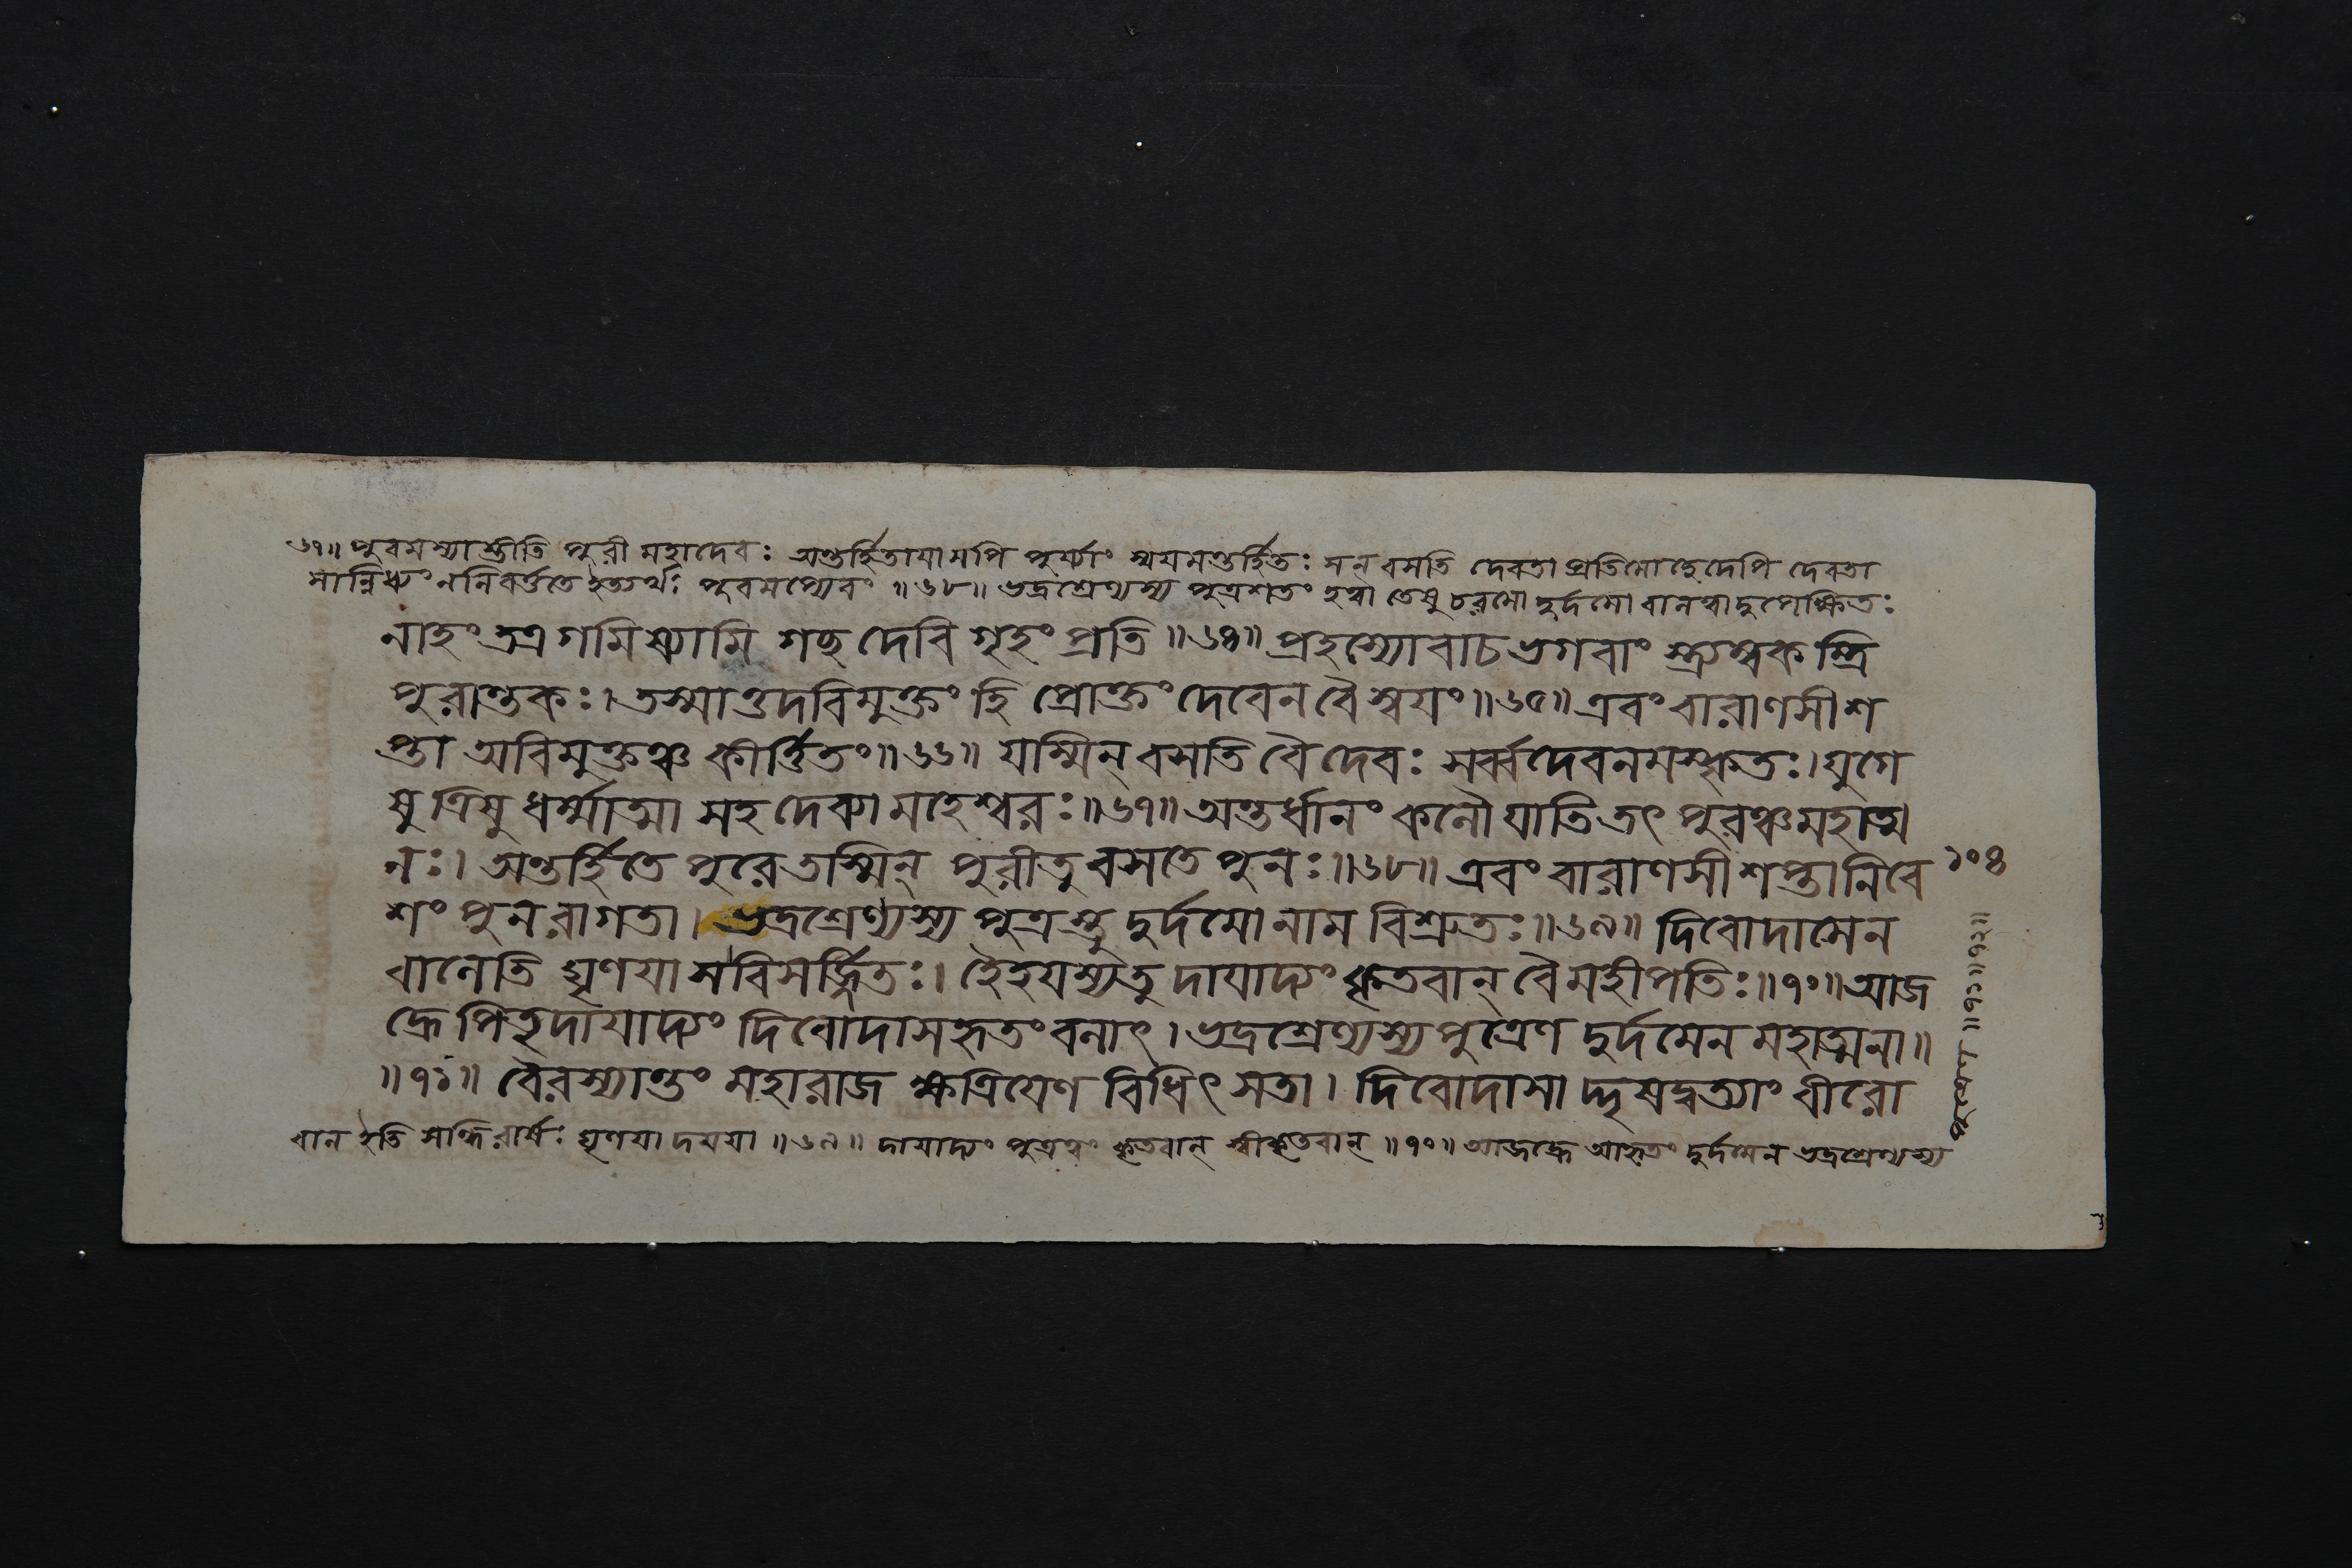 ৬৭॥ পুরমস্যাস্তীতি পুরী মহাদেবঃ অন্তর্হিতাযামপি পুর্য্যাং স্বযমন্তর্হিতঃ সন্ বসতি দেবতা প্রতিমোচ্ছেদেপি দেবতা
সান্নিধ্যং ননিবর্ত্ততে ইত্যর্থঃ পুরমপ্যেবং ॥৬৮॥ ভদ্রশ্রেণ্যস্য পুত্রশতং হত্বা তেষু চরমো দুর্দমো বালত্বাদুপেক্ষিতঃ
নাহং তত্র গমিষ্যামি গচ্ছ দেবি গৃহং প্রতি ॥৬৪॥ প্রহস্যোবাচ ভগবাং স্ত্র্যম্বকস্ত্রি
পুরান্তকঃ। তস্মাত্তদবিমুক্তং হি প্রোক্তং দেবেন বৈ স্বযং॥৬৫॥ এবং বারাণসী শ
প্তা অবিমুক্তঞ্চ কীর্ত্তিতং॥৬৬॥ যস্মিন্ বসতি বৈ দেবঃ সর্ব্বদেবনমস্কৃতঃ। যুগে
ষু ত্রিষু ধর্ম্মাত্মা সহ দেব্যা মহেশ্বরঃ॥৬৭॥ অন্তর্ধানং কলৌ যাতি তৎ পুরঞ্চ মহাত্ম
নঃ। অন্তর্হিতে পুরে তস্মিন্ পুরী তু বসতে পুনঃ॥৬৮॥ এবং বারাণসী শপ্তা নিবে
১০৪
শং পুনরাগতা। ভদ্রশ্রেণ্যস্য পুত্রস্তু দুর্দমো নাম বিশ্রুতঃ॥৬৯॥ দিবোদাসেন
বালেতি ঘৃণযা স বিসর্জ্জিতঃ। হৈহযস্য তু দাযাদ্যং কৃতবান্ বৈ মহীপতিঃ॥৭০॥ আজ
হ্রে পিতৃদাযাদ্যং দিবোদাসহৃতং বলাৎ। ভদ্রশ্রেণ্যস্য পুত্রেণ দুর্দমেন মহাত্মনা॥
॥৭১॥ বৈরস্যান্তং মহারাজ ক্ষত্রিযেণ বিধিৎসতা। দিবোদাসা দ্দৃষদ্বত্যাং বীরো
বাল ইতি সন্ধিরার্ষঃ ঘৃণযা দযযা ॥৬৯॥ দাযাদ্যং পুত্রত্বং কৃতবান্ স্বীকৃতবান্ ॥৭০॥ আজহ্রে আহৃতং দুর্দমেন ভদ্রশ্রেণ্যস্য
॥৭১॥৭২॥